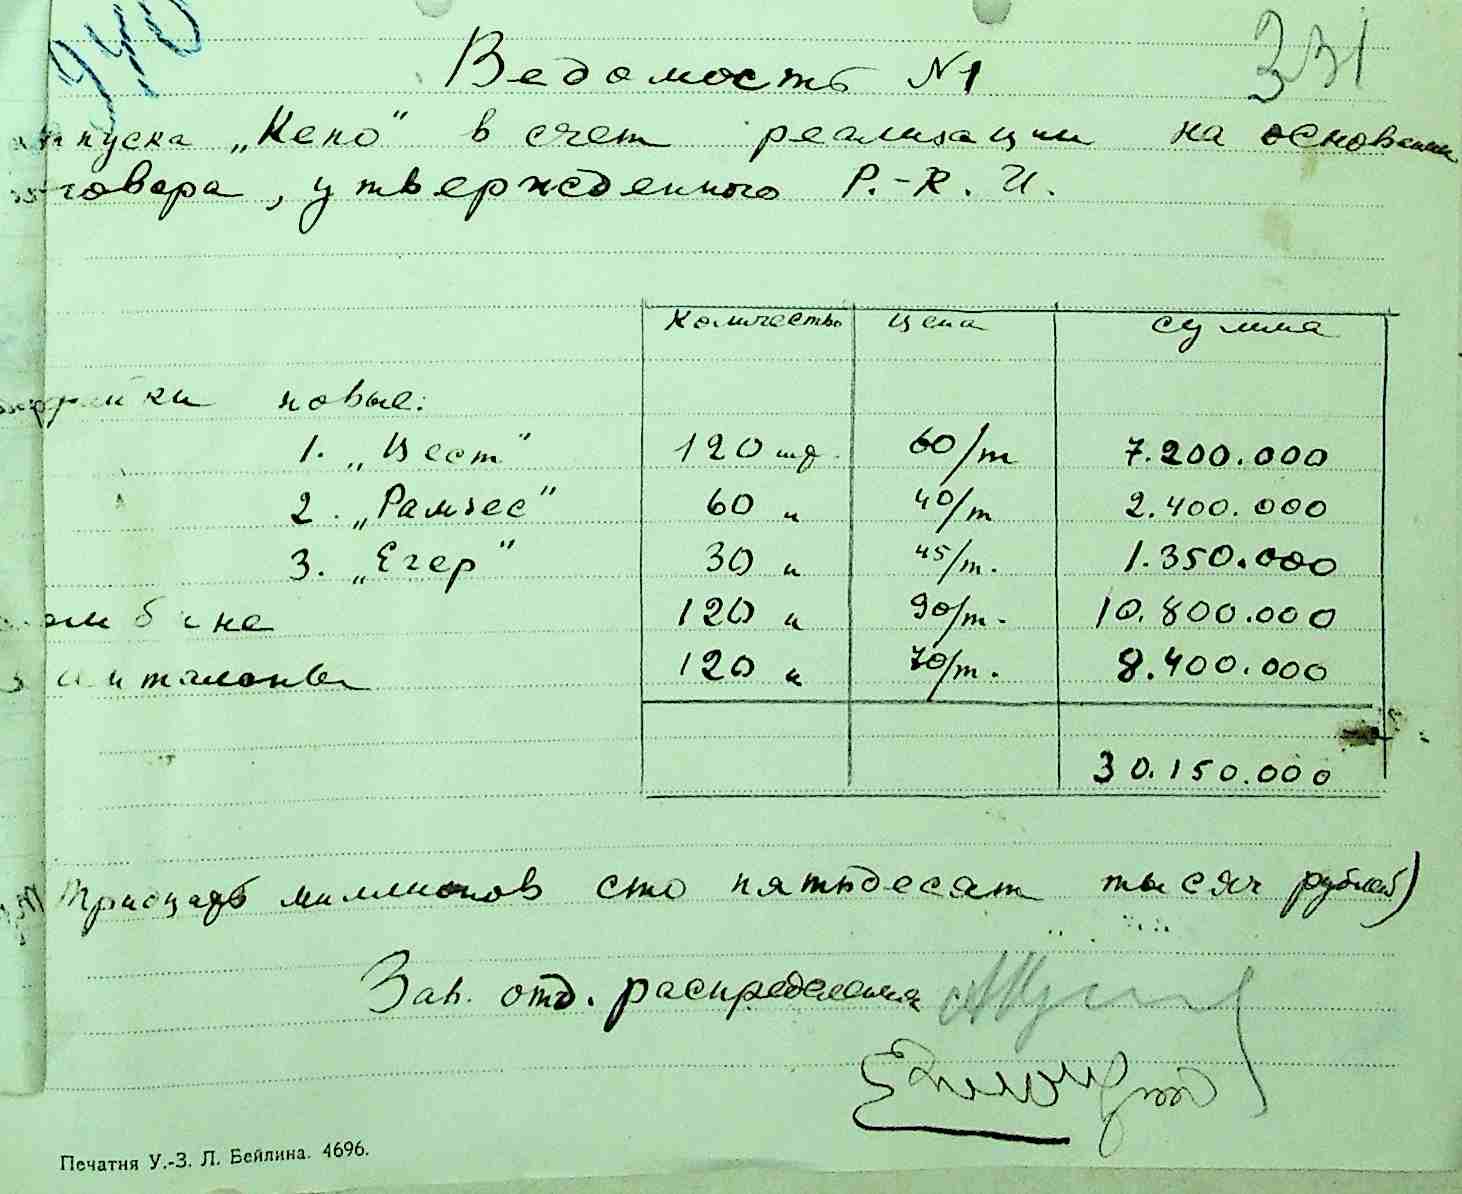 940
331
Ведомость №1
отпуска „Кепо" в счет реализации на основании
договора, утвержденного Р.-К.И.
Количество Цена Сумма
новые:
1. „Вест" 120 шт. 60/т 7.200.000
2. „Рамзес" 60 " 40/т 2.400.000
3. „Егер" 30 " 45/т. 1.350.000
120 " 90/т. 10.800.000
Панталоны 120 " 70/т. 8.400.000
30.150.000
Тридцать миллионов сто пятьдесят тысяч рублей)
Зав. отд. распределения
Печатня У.-З. Л. Бейлина. 4696.